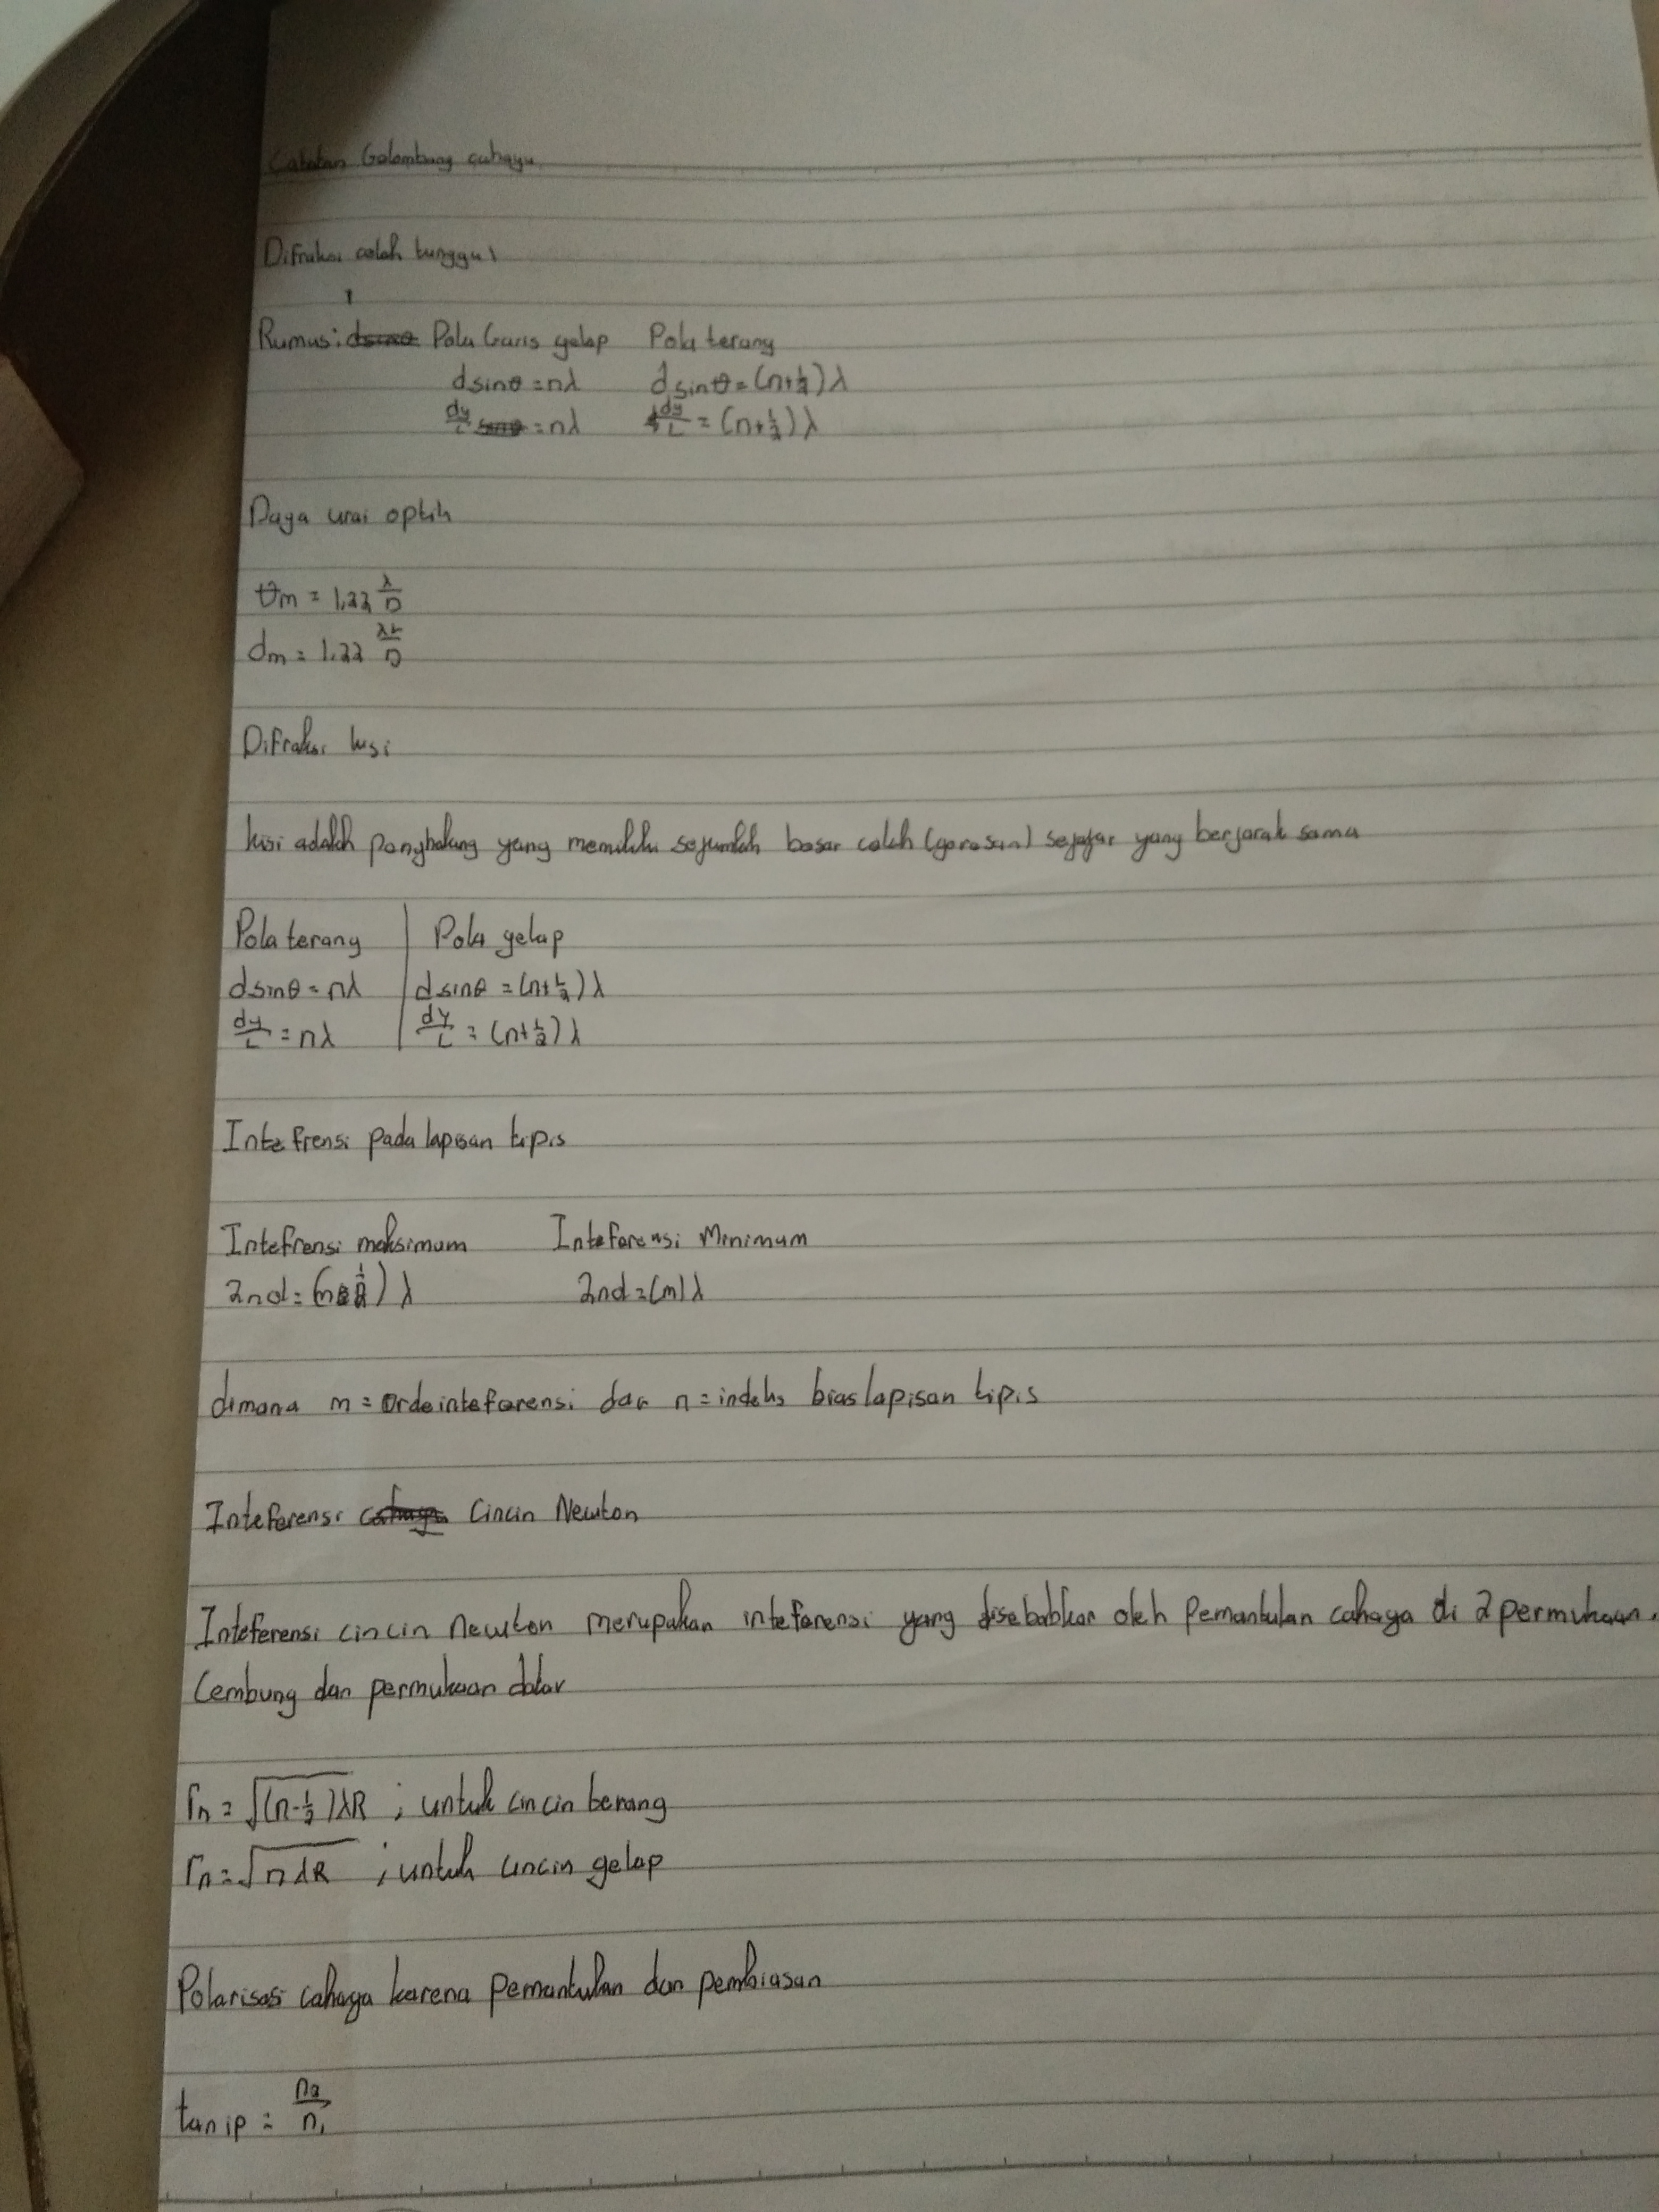 Catatan Gelombang cahaya
Difraksi celah tunggal
Rumus: Pola Garis gelap Pola terang
dsinθ = nλ dsinθ = (n+½)λ
dy/L = nλ dy/L = (n+½)λ
Daya urai optik
θm = 1,22 λ/D
dm = 1.22 λL/D
Difraksi kisi
kisi adalah penghalang yang memiliki sejumlah besar celah (goresan) sejajar yang berjarak sama
Pola terang | Pola gelap
dsinθ = nλ | dsinθ = (n+½)λ
dy/L = nλ | dy/L = (n+½)λ
Intefrensi pada lapisan tipis
Intefrensi maksimum Inteferensi Minimum
2nd = λ 2nd = (m)λ
dimana m = Orde inteferensi dan n = indeks bias lapisan tipis
Inteferensi Cincin Newton
Inteferensi cincin Newton merupakan inteferensi yang disebabkan oleh Pemantulan cahaya di 2 permukaan.
Cembung dan permukaan datar
rn = √(n-½)λR ; untuk cincin berang
rn = √nλR ; untuk cincin gelap
Polarisasi cahaya karena pemantulan dan pembiasan
tan ip = n2/n1